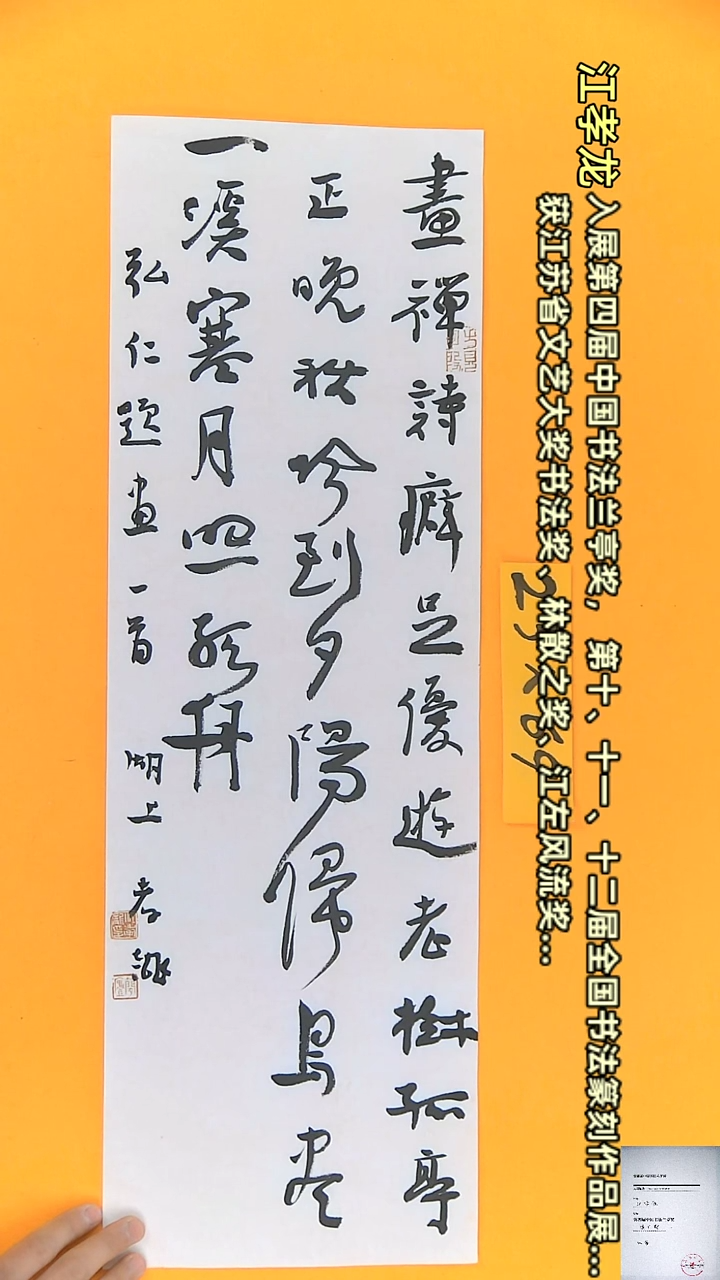 江孝龙 入展第四届中国书法兰亭奖，第十、十一、十二届全国书法篆刻作品展...
获江苏省文艺大奖书法奖、林散之奖、江左风流奖...
畫禪詩癖足優遊老樹孤亭
正晚秋吟到夕陽歸鳥盡
一溪寒月照孤舟
弘仁題畫一首 湖上 孝龍